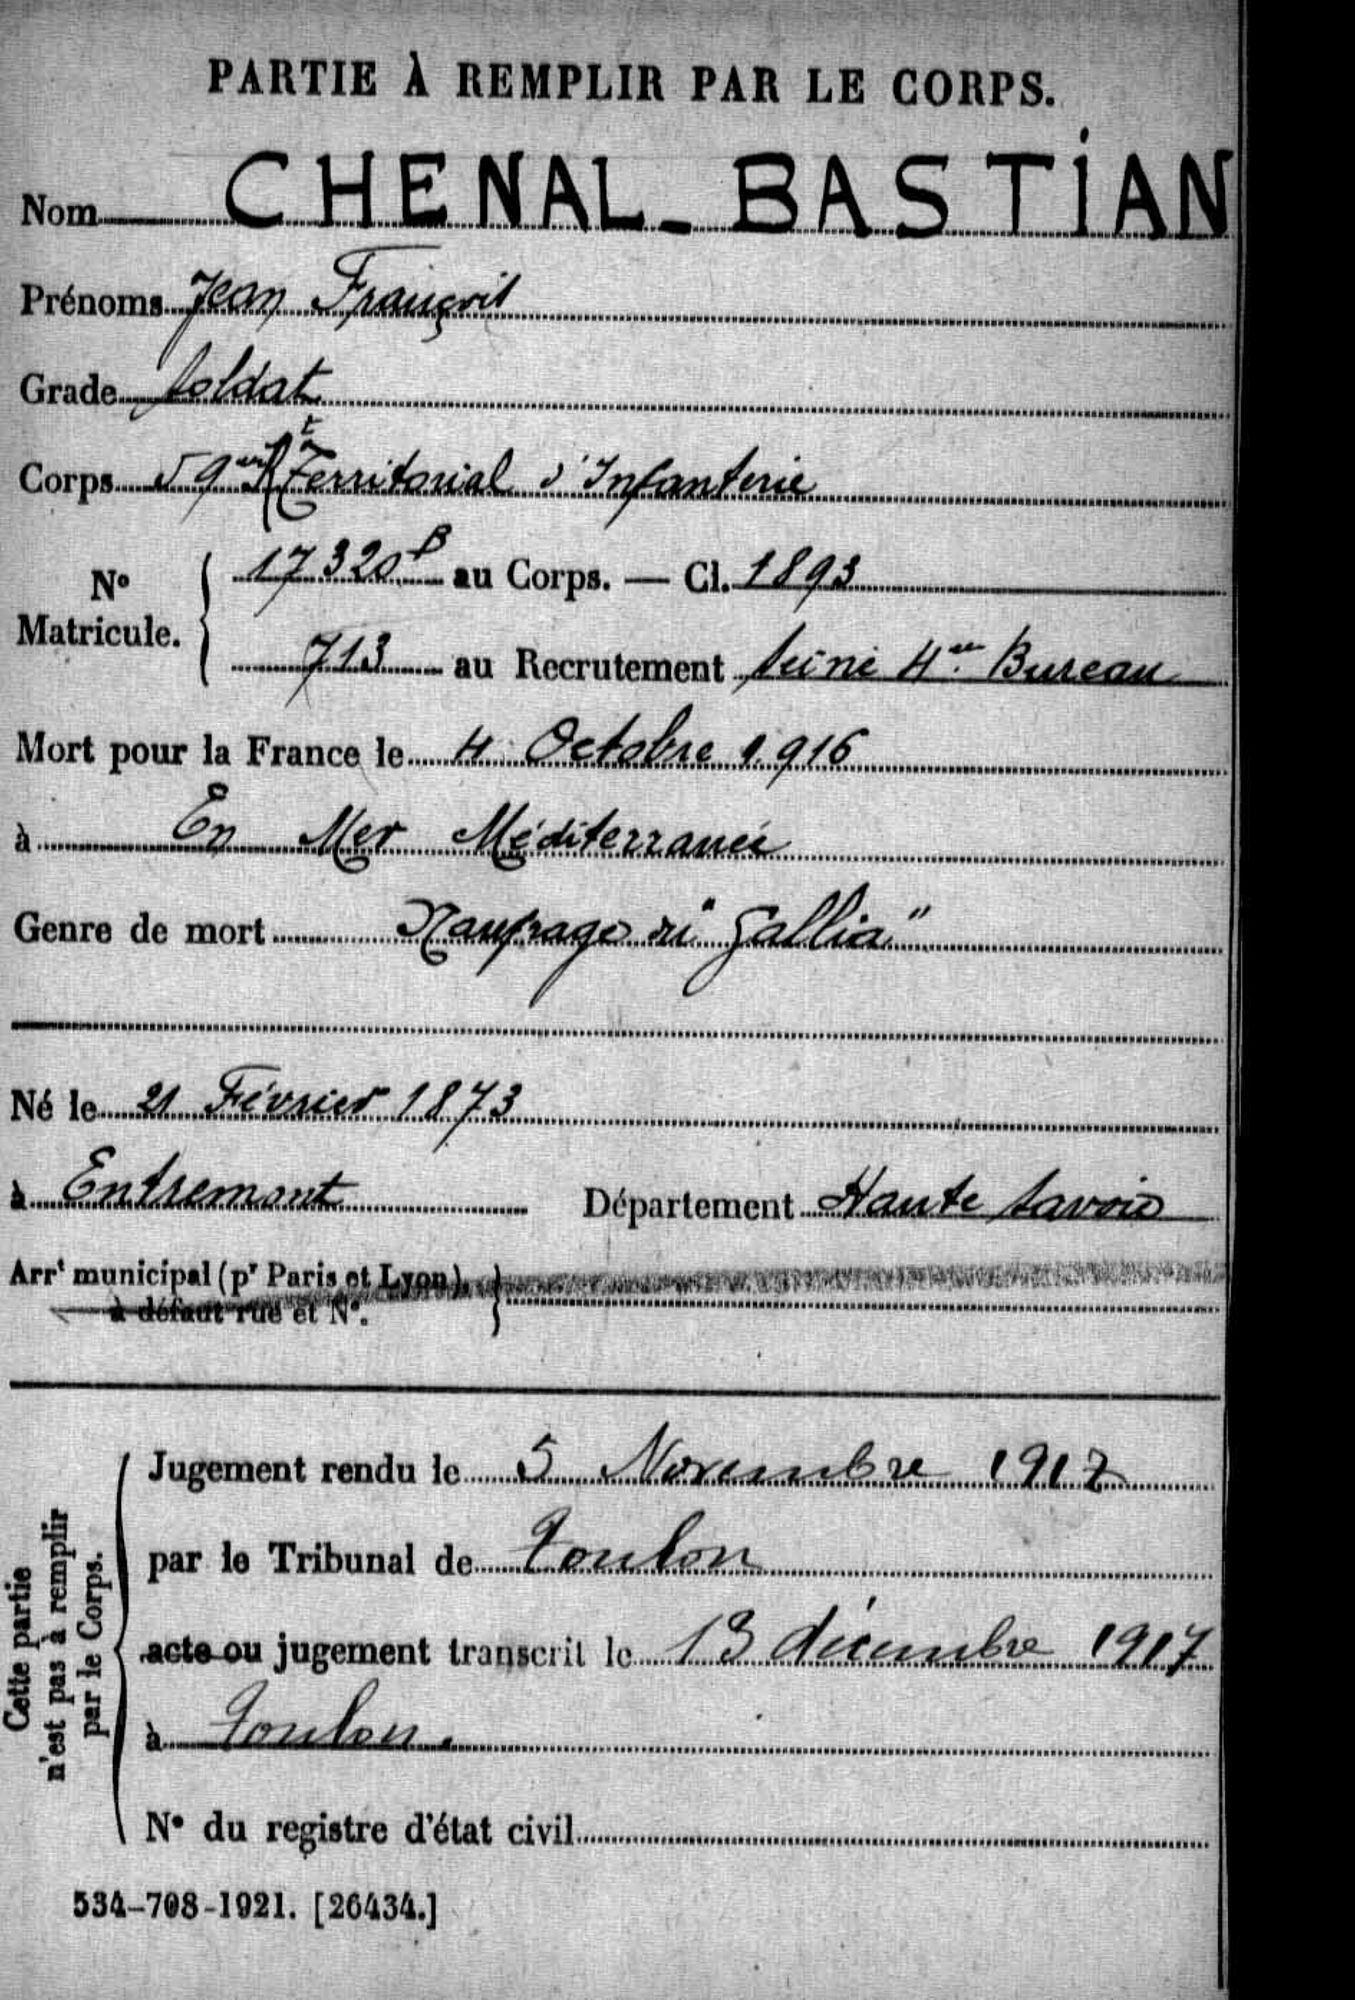 PARTIE À REMPLIR PAR LE CORPS.
Nom CHENAL-BASTIAN
Prénoms Jean François
Grade Soldat
Corps 59me Rt Territorial d'Infanterie
N° Matricule. { 17320 B au Corps. — Cl. 1893
713 au Recrutement Seine 4me Bureau
Mort pour la France le 4 Octobre 1916
à En Mer Méditerranée
Genre de mort Naufrage du "Gallia"
Né le 21 Février 1873
à Entremont Département Haute Savoie
Arrt municipal (pr Paris et Lyon),
à défaut rue et N°.
Cette partie n'est pas à remplir par le Corps.
Jugement rendu le 5 Novembre 1917
par le Tribunal de Toulon
acte ou jugement transcrit le 13 décembre 1917
à Toulon.
N° du registre d'état civil
534-708-1921. [26434.]